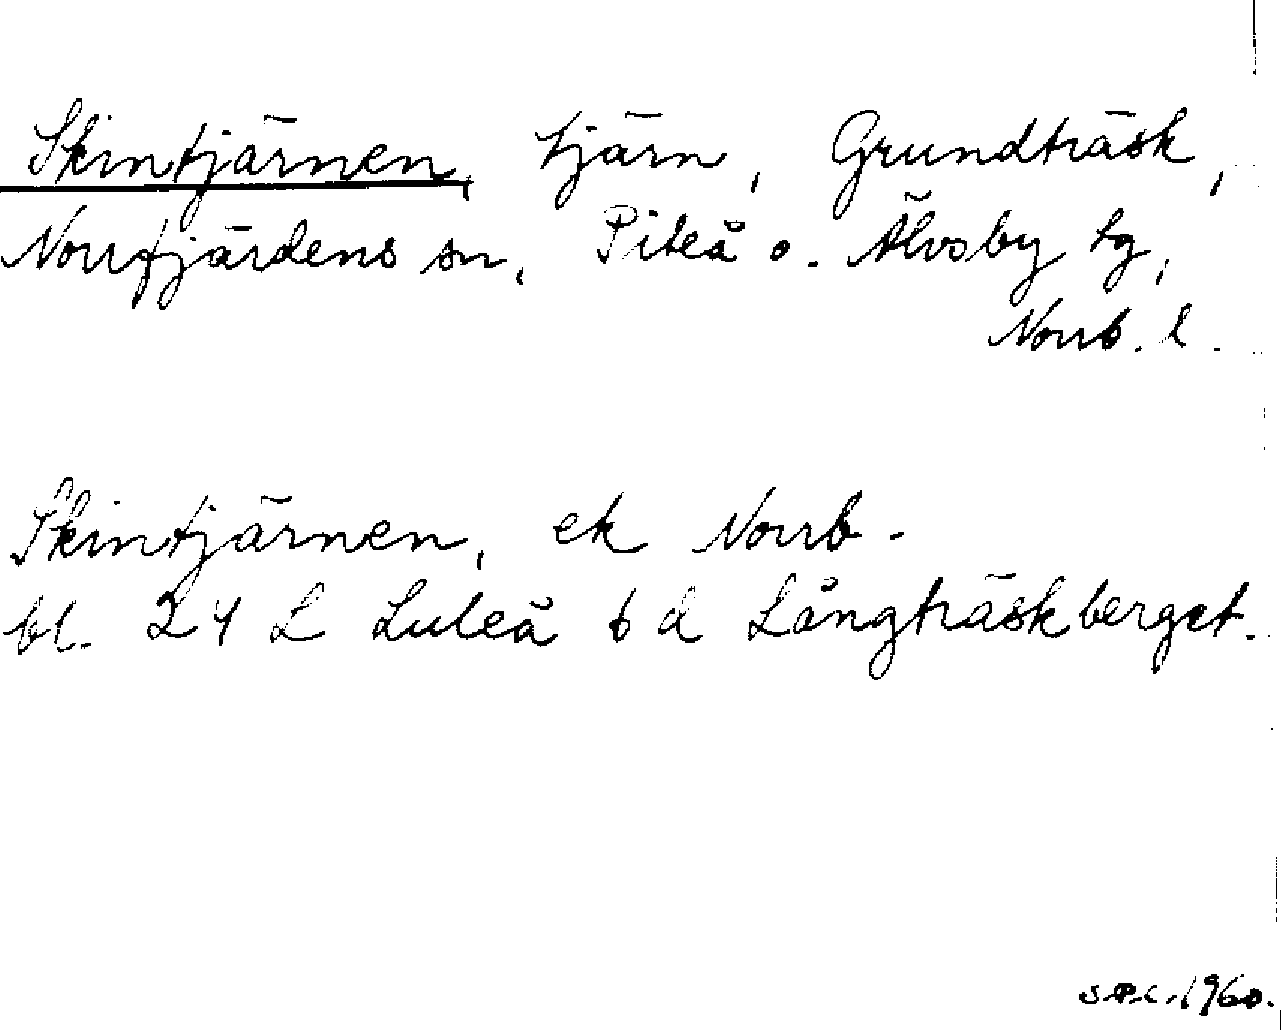 Skintjärnen, tjärn, Grundträsk,
Norrfjärdens sn, Piteå o. Älvsby tg,
Norrb. l.
Skintjärnen, ek Norrb.
bl. 24 L Luleå 6 d Långträskberget.
S.P.C. 1960.